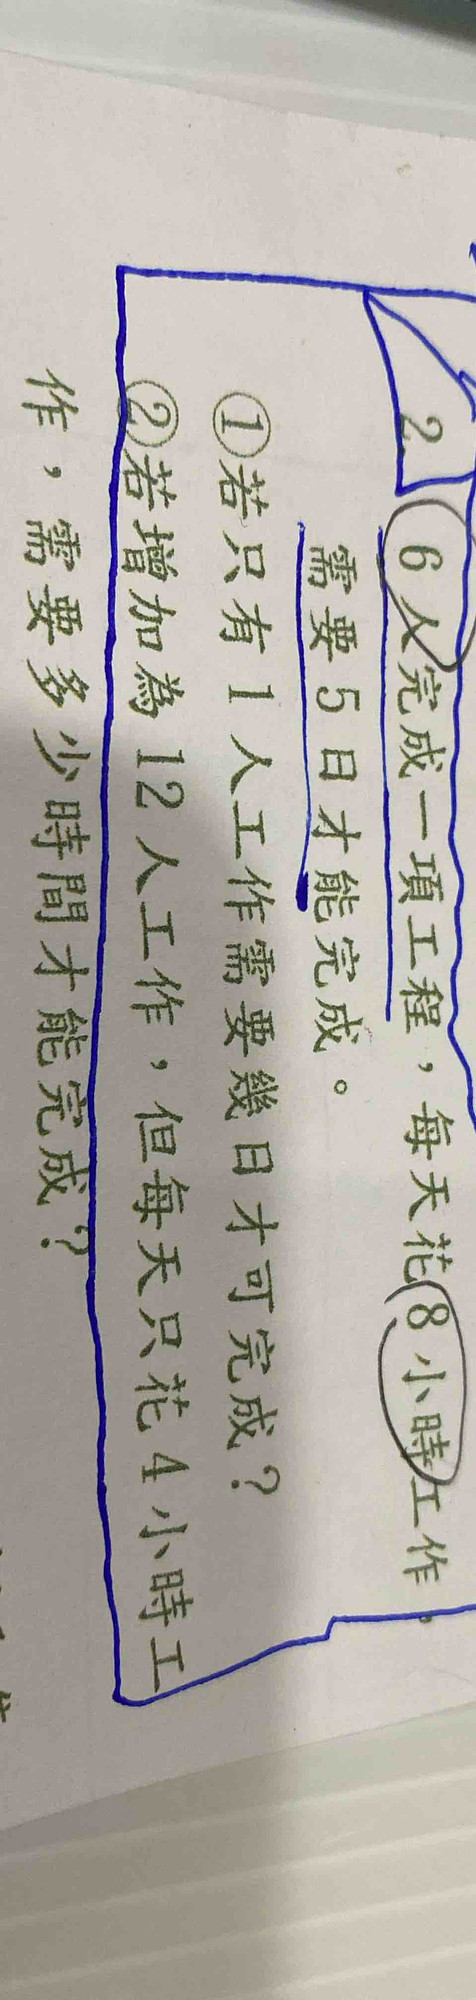 2 6人完成一項工程，每天花8小時工作，
需要5日才能完成。
①若只有1人工作需要幾日才可完成？
②若增加為12人工作，但每天只花4小時工
作，需要多少時間才能完成？